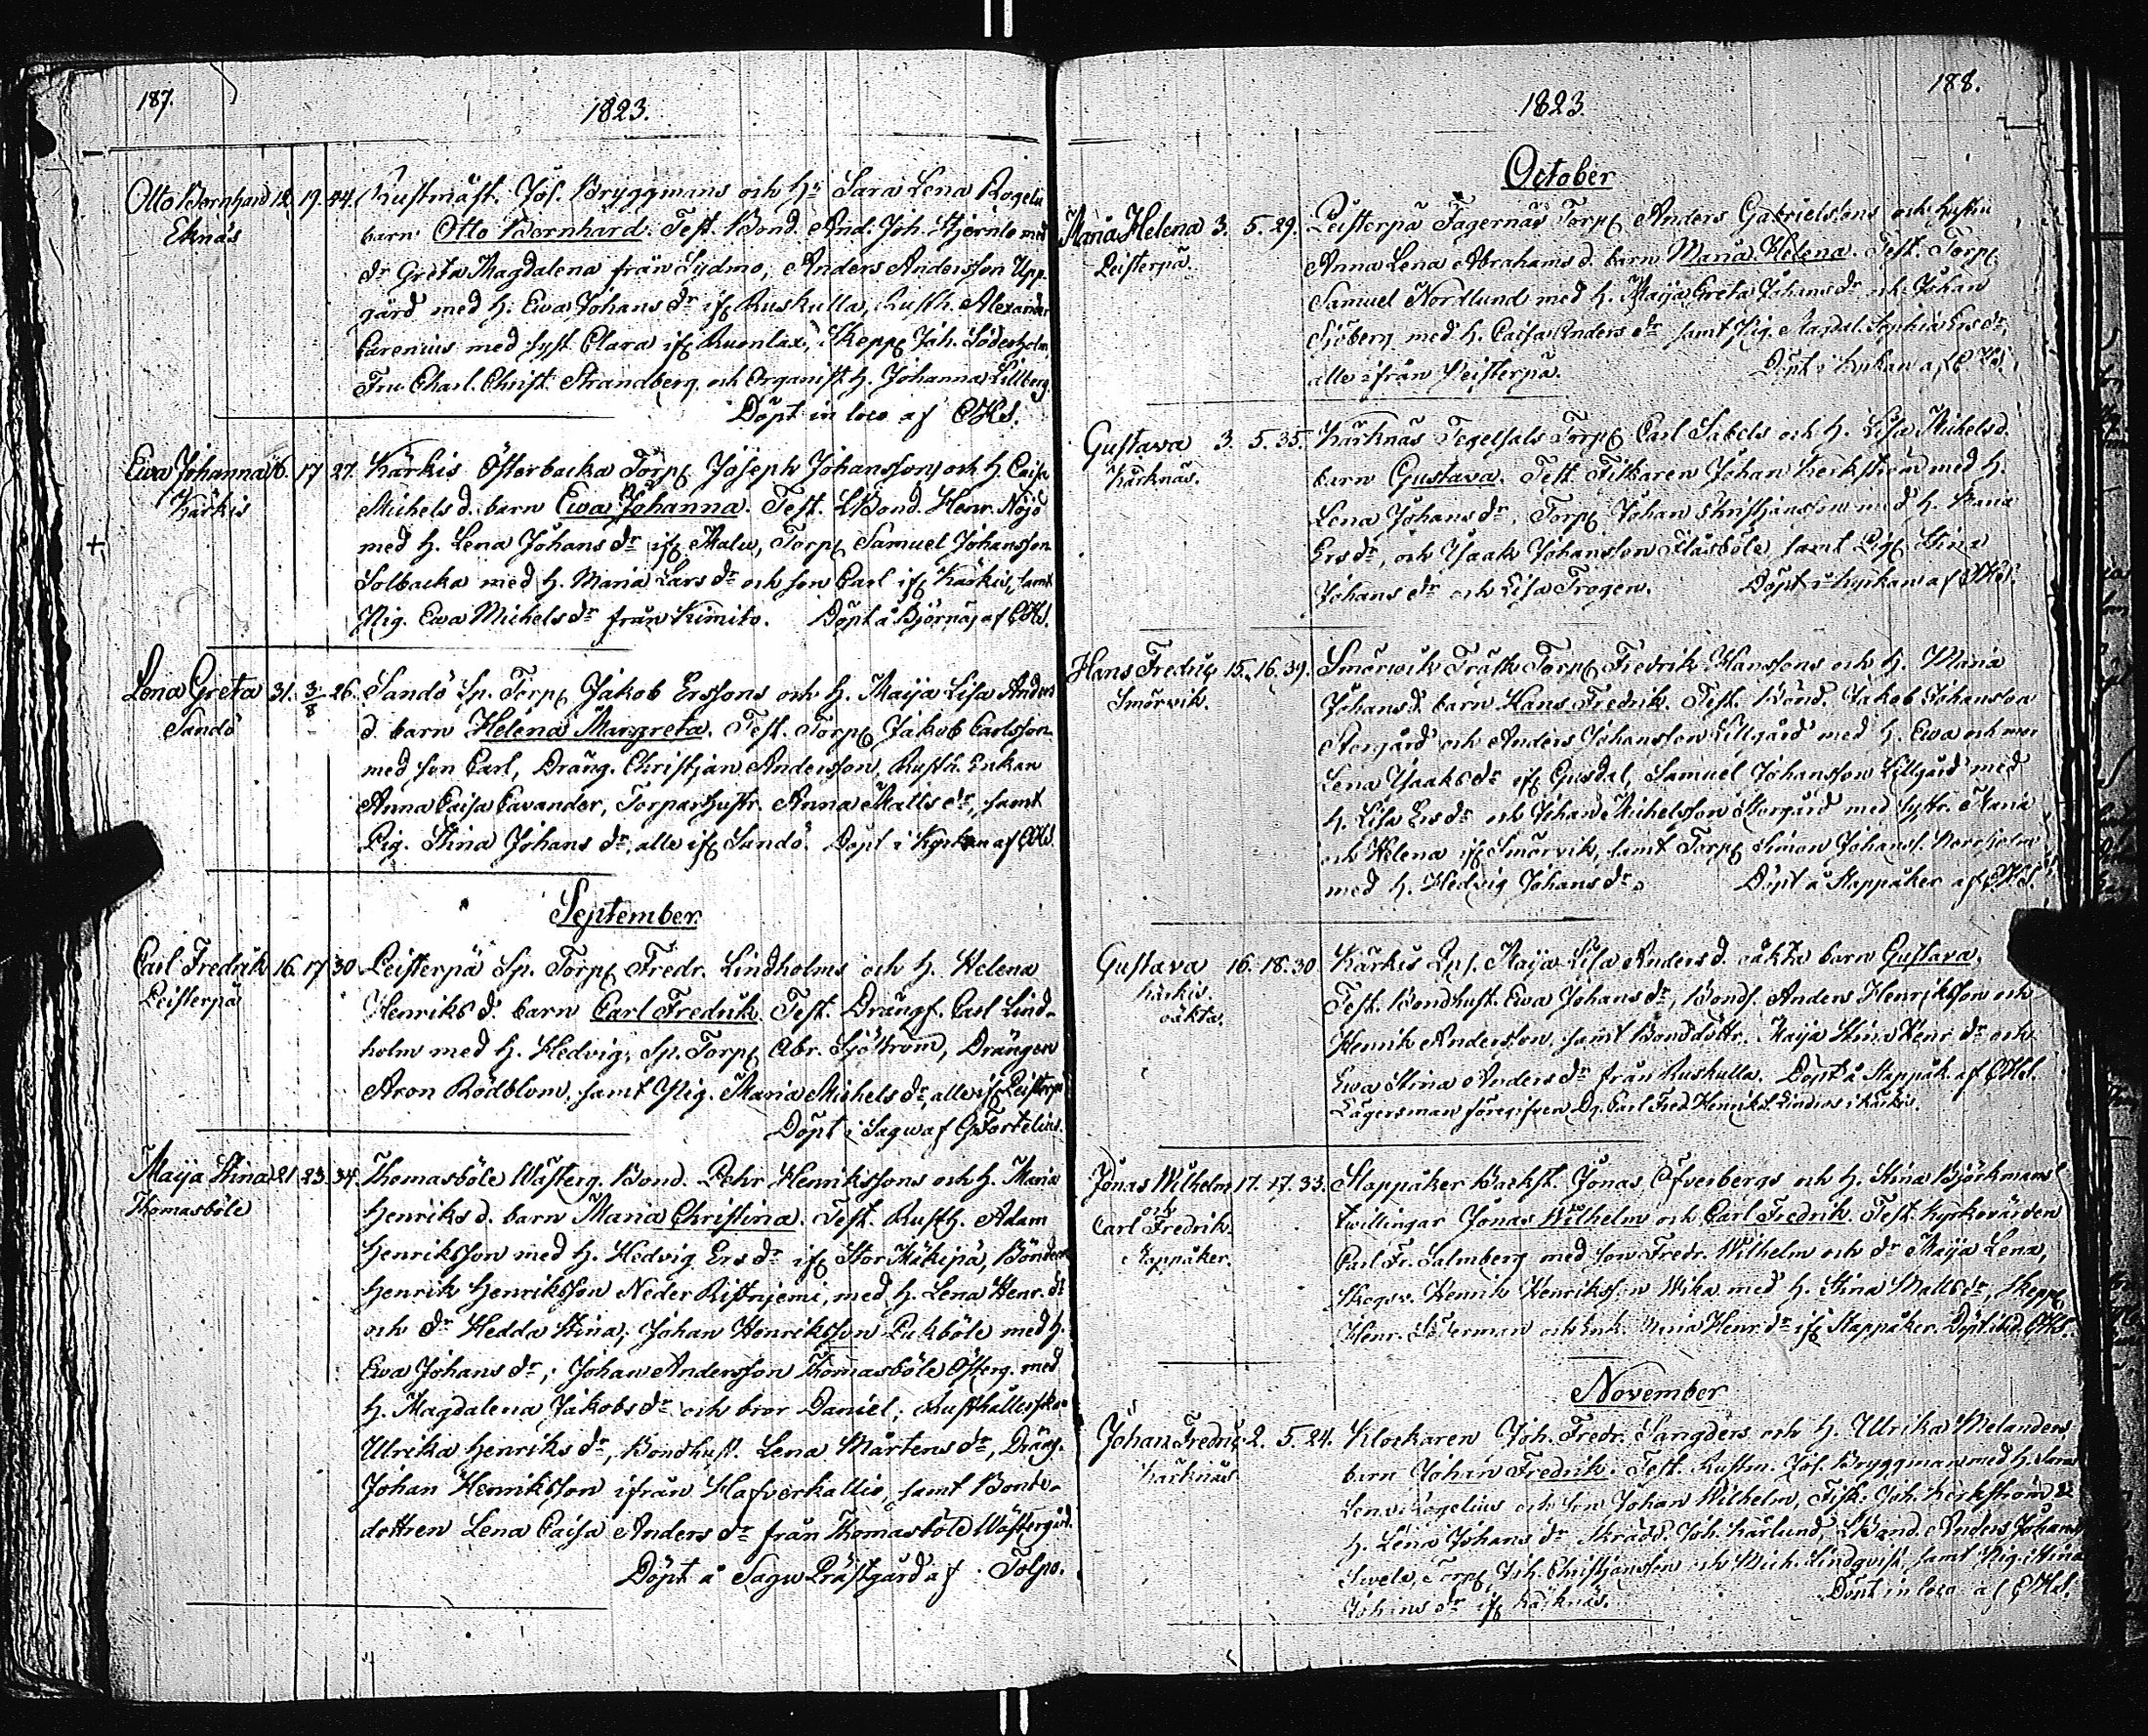 187.
1823.
Otto Bernhard 12. 19. 44. Rustmäst. Jos. Bryggmans och H:u Sara Lena Rogelii
Eknäs
barn Otto Bernhard. Test. Bond. And. Joh. Stjernlo med
dr Greta Magdalena från Lydmo, Anders Andersson Upp-
gård med h. Ewa Johans dr if. Ruskulla, Rusth. Alexander
Carenius med syst. Clara if. Ruonlax, Skepp. Joh. Söderholm
Fru Charl. Christ. Strandberg och Organist h. Johanna Lillberg
Döpt in loco af CHS.
Ewa Johanna 16. 17 27. Kärkis Österbacka Torp. Joseph Johanssons och h. Caisa
Kärkis
Michels d. barn Ewa Johanna. Test. LBond. Henr. Nöjd
med h. Lena Johans dr if. Malu, Torp. Samuel Johansson
Solbacka med h. Maria Lars dr och son Carl if. Kärkis, samt
Pig. Ewa Michels dr från Kimito. Döpt å Björnäs af CHS.
Lena Greta 31. 3/8 26. Sandö Sp. Torp. Jakob Erssons och h. Maija Lisa Anders
Sandö
d. barn Helena Margreta. Test. Torp. Jakob Carlsson
med son Carl, Dräng. Christjan Andersson, Rusth. Enkan
Anna Caisa Cavander, Torparhustr. Anna Matts dr, samt
Pig. Stina Johans dr, alle if. Sandö. Döpt i Kyrkan af CHS.
September.
Carl Fredrik 16. 17 30 Leisterpä Sp. Torp. Fredr. Lindholms och h. Helena
Leisterpä
Henriks d. barn Carl Fredrik. Test. Drängf. Carl Lind-
holm med h. Hedvig, Sp. Torp. Abr. Sjöström, Drängen
Aron Rödblom, samt Pig. Maria Michels dr, alle if. Leisterpä
Döpt i Sagu af G Fortelius.
Maija Stina 21. 23. 34. Thomasböle Wästerg. Bond. Pehr Henrikssons och h. Maria
Thomasböle
Henriks d. barn Maria Christina. Test. Rusth. Adam
Henriksson med h. Hedvig Ers dr if. Stor Mäkipä, Bönderne
Henrik Henriksson Neder Ristnjemi, med h. Lena Henr. dr
och dr Hedda Stina; Johan Henriksson Pukböle med h.
Ewa Johans dr; Johan Andersson Thomasböle Österg. med
h. Magdalena Jakobs dr och bror Daniel; Rusthållerskan
Ulrika Henriks dr, Bondhust. Lena Mårtens dr, Dräng.
Johan Henriksson ifrån Hafverkallio, samt Bonde-
dottren Lena Caisa Anders dr från Thomasböle Wästergård.
Döpt å Sagu Prästgård af Tolpo.
188.
1823.
October
Maria Helena 3. 5. 29. Leisterpä Fagernäs Torp. Anders Gabrielssons och hustru
Leisterpä.
Anna Lena Abrahams d. barn Maria Helena. Test. Torp.
Samuel Nordlund med h. Maija Greta Johans dr och Johan
Sjöberg med h. Caisa Anders dr samt Pig. Magdal. Sophia Ers dr,
alle ifrån Leisterpä. Döpt i Kyrkan af CHS.
Gustava 3. 5. 35. Kärknäs Tegelsals Torp. Carl Sabels och h. Lisa Michels d.
Kärknäs.
barn Gustava. Test. Fiskaren Johan Kerkström med h.
Lena Johans dr, Torp. Johan Christjansson med h. Maria
Ers dr, och Isaak Johansson Flåsböle samt Pig. Stina
Johans dr och Lisa Trogen. Döpt i Kyrkan af CHS.
Hans Fredric 15. 16. 39. Smörvik Träsk Torp. Fredrik Hanssons och h. Maria
Smörvik.
Johans d. barn Hans Fredrik. Test. Bönd. Jakob Johansson
Storgård och Anders Johansson Lillgård med h. Ewa och mor
Lena Isaaks dr if. Gusdal, Samuel Johansson Lillgård med
h. Lisa Ers dr och Johan Michelsson Storgård med systr. Maria
och Helena if. Smörvik, samt Torp. Simon Johans. Norrholm
med h. Hedvig Johans dr. Döpt å Stappåker af CHS.
Gustava 16. 18. 30. Kärkis Lps. Maija Lisa Anders d. oäkta barn Gustava.
Kärkis.
oäkta.
Test. Bondhust. Ewa Johans dr, Bonds. Anders Henriksson och
Henrik Andersson, samt Bonddöttr. Maija Stina Henr dr och
Ewa Stina Anders dr från Ruskulla. Döpt å Stappåk. af CHS.
Lägersman föregifven Dg. Carl Fred Henriks. Lindros i Kärkis.
Jonas Wilhelm 17. 17. 33. Stappåker Backst. Jonas Öfverbergs och h. Stina Björkmans
och
Carl Fredrik
Stappåker.
twillingar Jonas Wilhelm och Carl Fredrik. Test. Kyrkovärden
Carl Fr. Salmberg med son Fredr. Wilhelm och dr Maija Lena,
Skogsv. Henrik Henriksson Wika med h. Stina Matts dr, Skepp.
Henr. Söderman och Enk. Maria Henr. dr if. Stappåker. Döpt ibid. CHS.
November
Johan Fredric 2. 5. 24. Klockaren Joh. Fredr. Sangders och h. Ulrika Melanders
Kärknäs
barn Johan Fredrik. Test. Rustm. Jos. Bryggman med h. Sara
Lena Rogelius och son Johan Wilhelm, Fisk. Joh. Kerkström &
h. Lena Johans dr Skrädd. Joh. Karlund, LBond. Anders Johans.
Torp. Joh. Christjansson och Mich. Lindqvist, samt Pig. Stina
Johans dr if. Kärknäs. Döpt in loco af CHS.